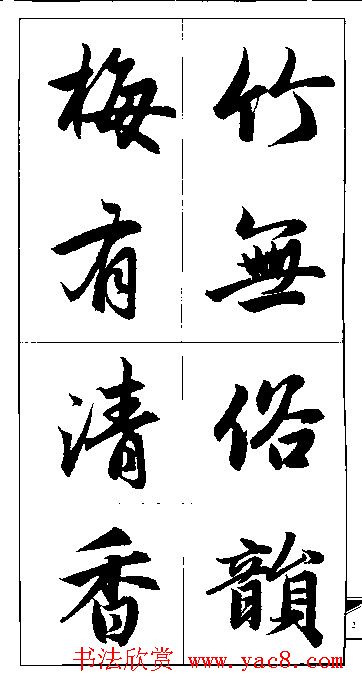 竹無俗韻
梅有清香
书法欣赏 www.yac8.com
2